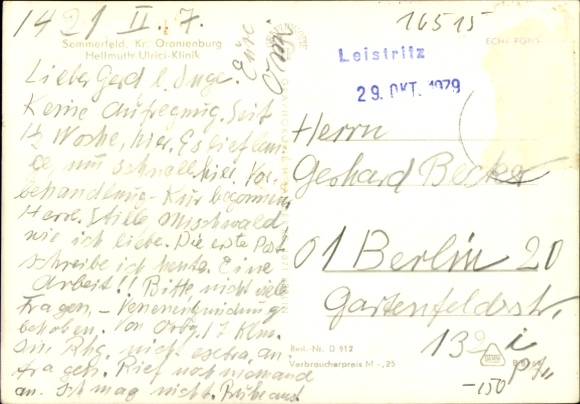 1421 II. 7.
16515
Sommerfeld, Kr. Oranienburg
Hellmuth-Ulrici-Klinik
ECHT FOTO
Leistritz
29. OKT. 1979
Lieber Gerd & Inge.
Eure
Keine Aufregung. Seit
½ Woche, hier. Es lief lan-
ge, nun schnell hier. Vor-
behandlung - Kur begonnen
Herrl. Stille Mischwald
wie ich liebe. Die erste Post
schreibe ich heute. Eine
Arbeit!! Bitte, nicht viele
Fragen, - Venenentzündung
behoben. Von Orbg. 17 Klm.
nicht extra, an
Rief noch niemand
an. Ich mag nicht. Ruhe aus
Herrn
Gerhard Becker
01 Berlin 20
Gartenfeldstr.
Best.-Nr. D 912
Verbraucherpreis M -,25
-150